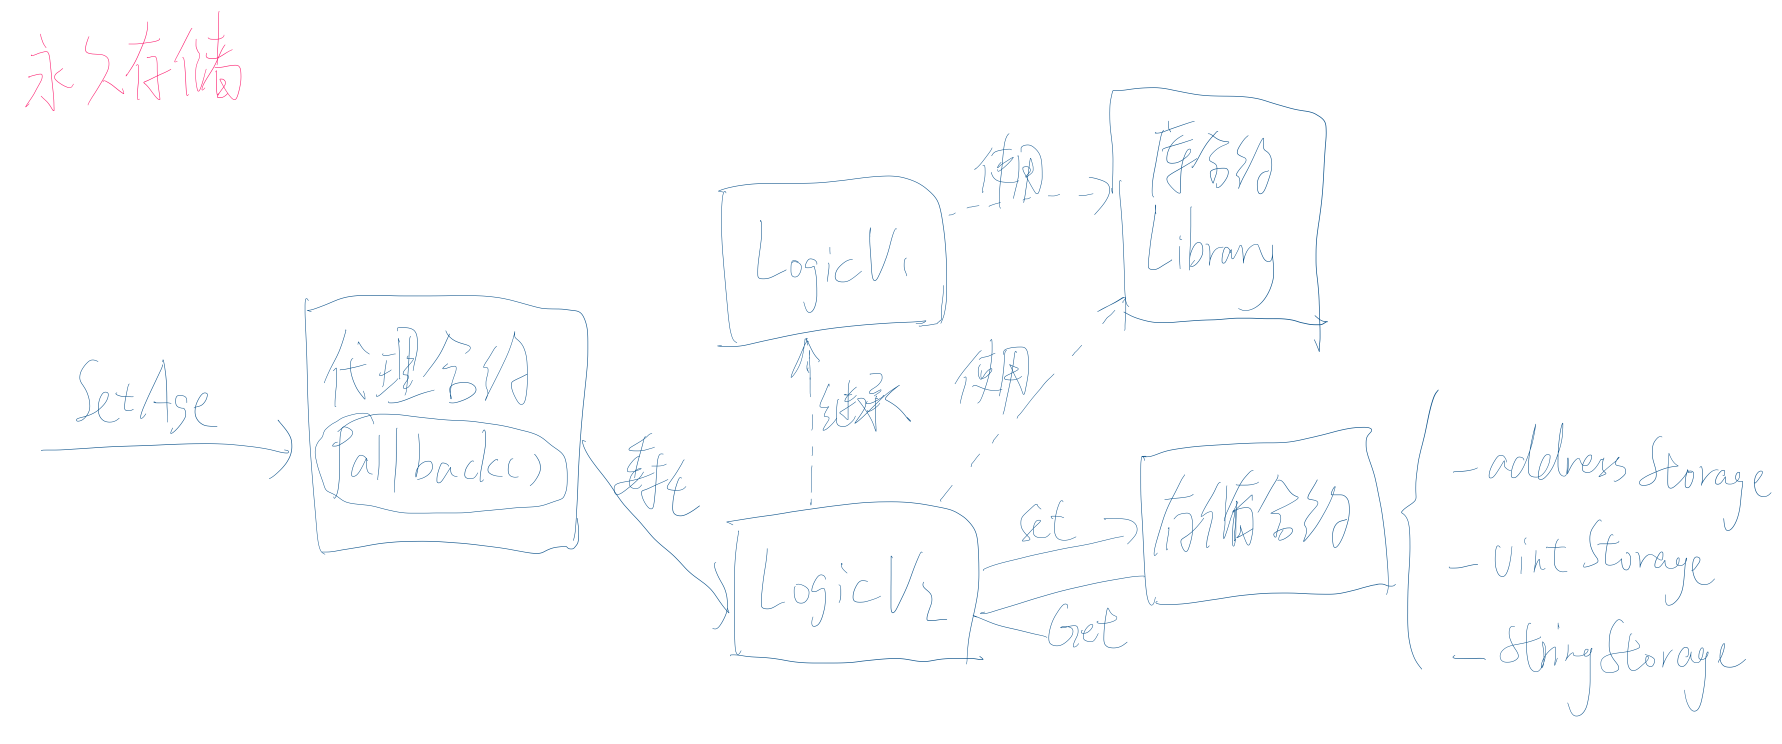 永久存储
SetAge
代理合约
fallback()
委托
LogicV1
使用
库合约
Library
继承
使用
LogicV2
set
Get
存储合约
- addressStorage
- UintStorage
- StringStorage